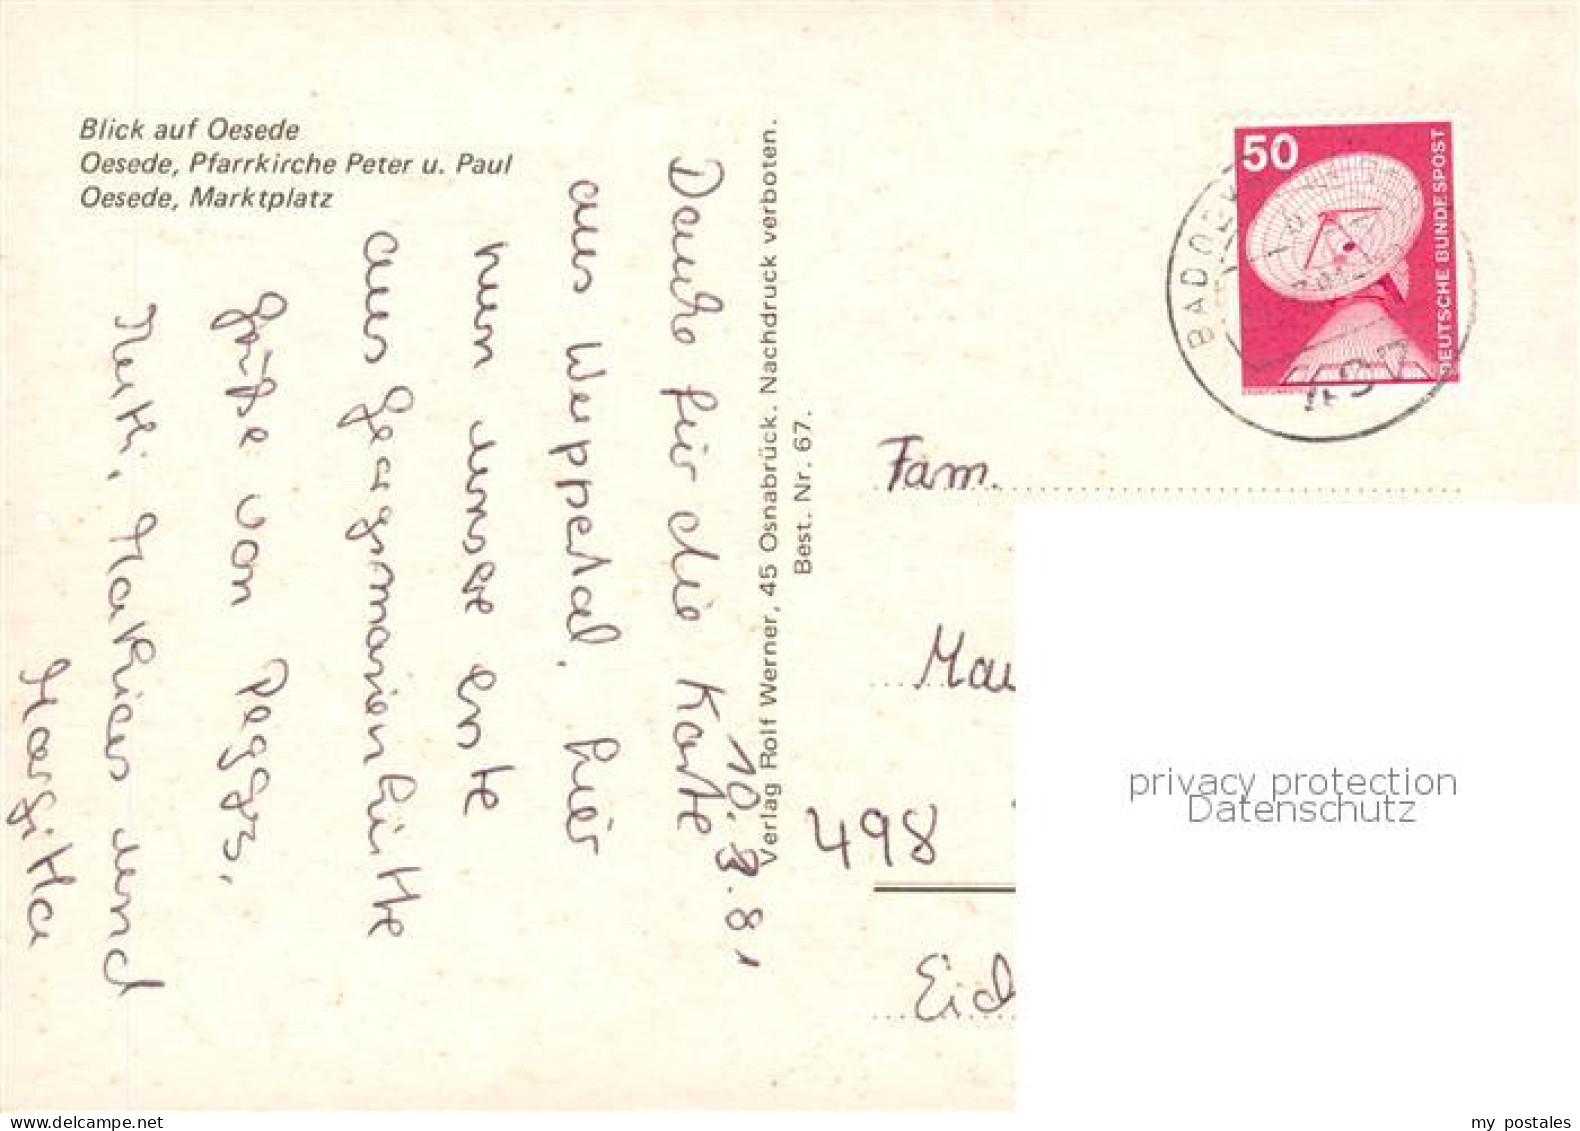 Blick auf Oesede
Oesede, Pfarrkirche Peter u. Paul
Oesede, Marktplatz
10.3.81
Danke für die Karte
aus Wuppertal. hier
nun unsere erste
aus Georgsmarienhütte
Grüße von Peggy,
Mutti, Mathias und
Margitta
Verlag Rolf Werner, 45 Osnabrück. Nachdruck verboten.
Best. Nr. 67.
50
DEUTSCHE BUNDESPOST
BAD
Fam.
Mau
498
Eich
privacy protection
Datenschutz
www.delcampe.net
my postales